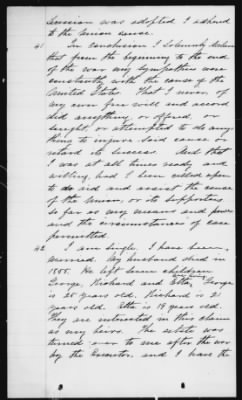 Secession was adopted I adhered
to the Union cause.
41 In conclusion I solemnly declare
that from the beginning to the end
of the war my sympathies were
constantly with the cause of the
United States. That I never of
my own free will and accord
did anything or offered, or
sought, or attempted to do any-
thing to injure said cause, or
retard its success. And that
I was at all times ready and
willing, had I been called upon
to do aid and assist the cause
of the Union, or its supporters
so far as my means and power
and the circumstances of case
permitted.
42 I am single, I have been
married. My husband died in
He left seven children
George, Richard and Etta, George
is 25 years old. Richard is 21
years old. Etta is 19 years old.
They are interested in this claim
as my heirs. The estate was
turned over to me after the war
by the Executor, and I have the